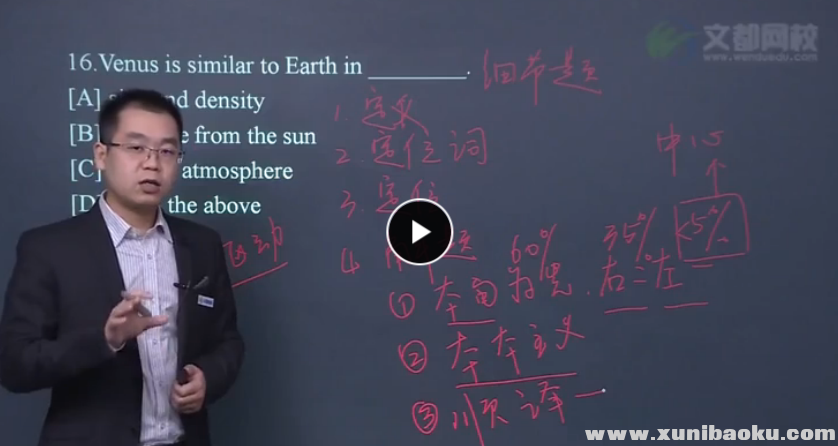 文都网校
www.wenduedu.com
16.Venus is similar to Earth in ________.
细节题
[A] and density
[B] e from the sun
[C] atmosphere
[D the above
1. 定义
2. 定位词
3. 定位
4
60% 35% <5%
中心
① 本句为先 右二左一
② 本本主义
③ 顺译一
动
www.xunibaoku.com